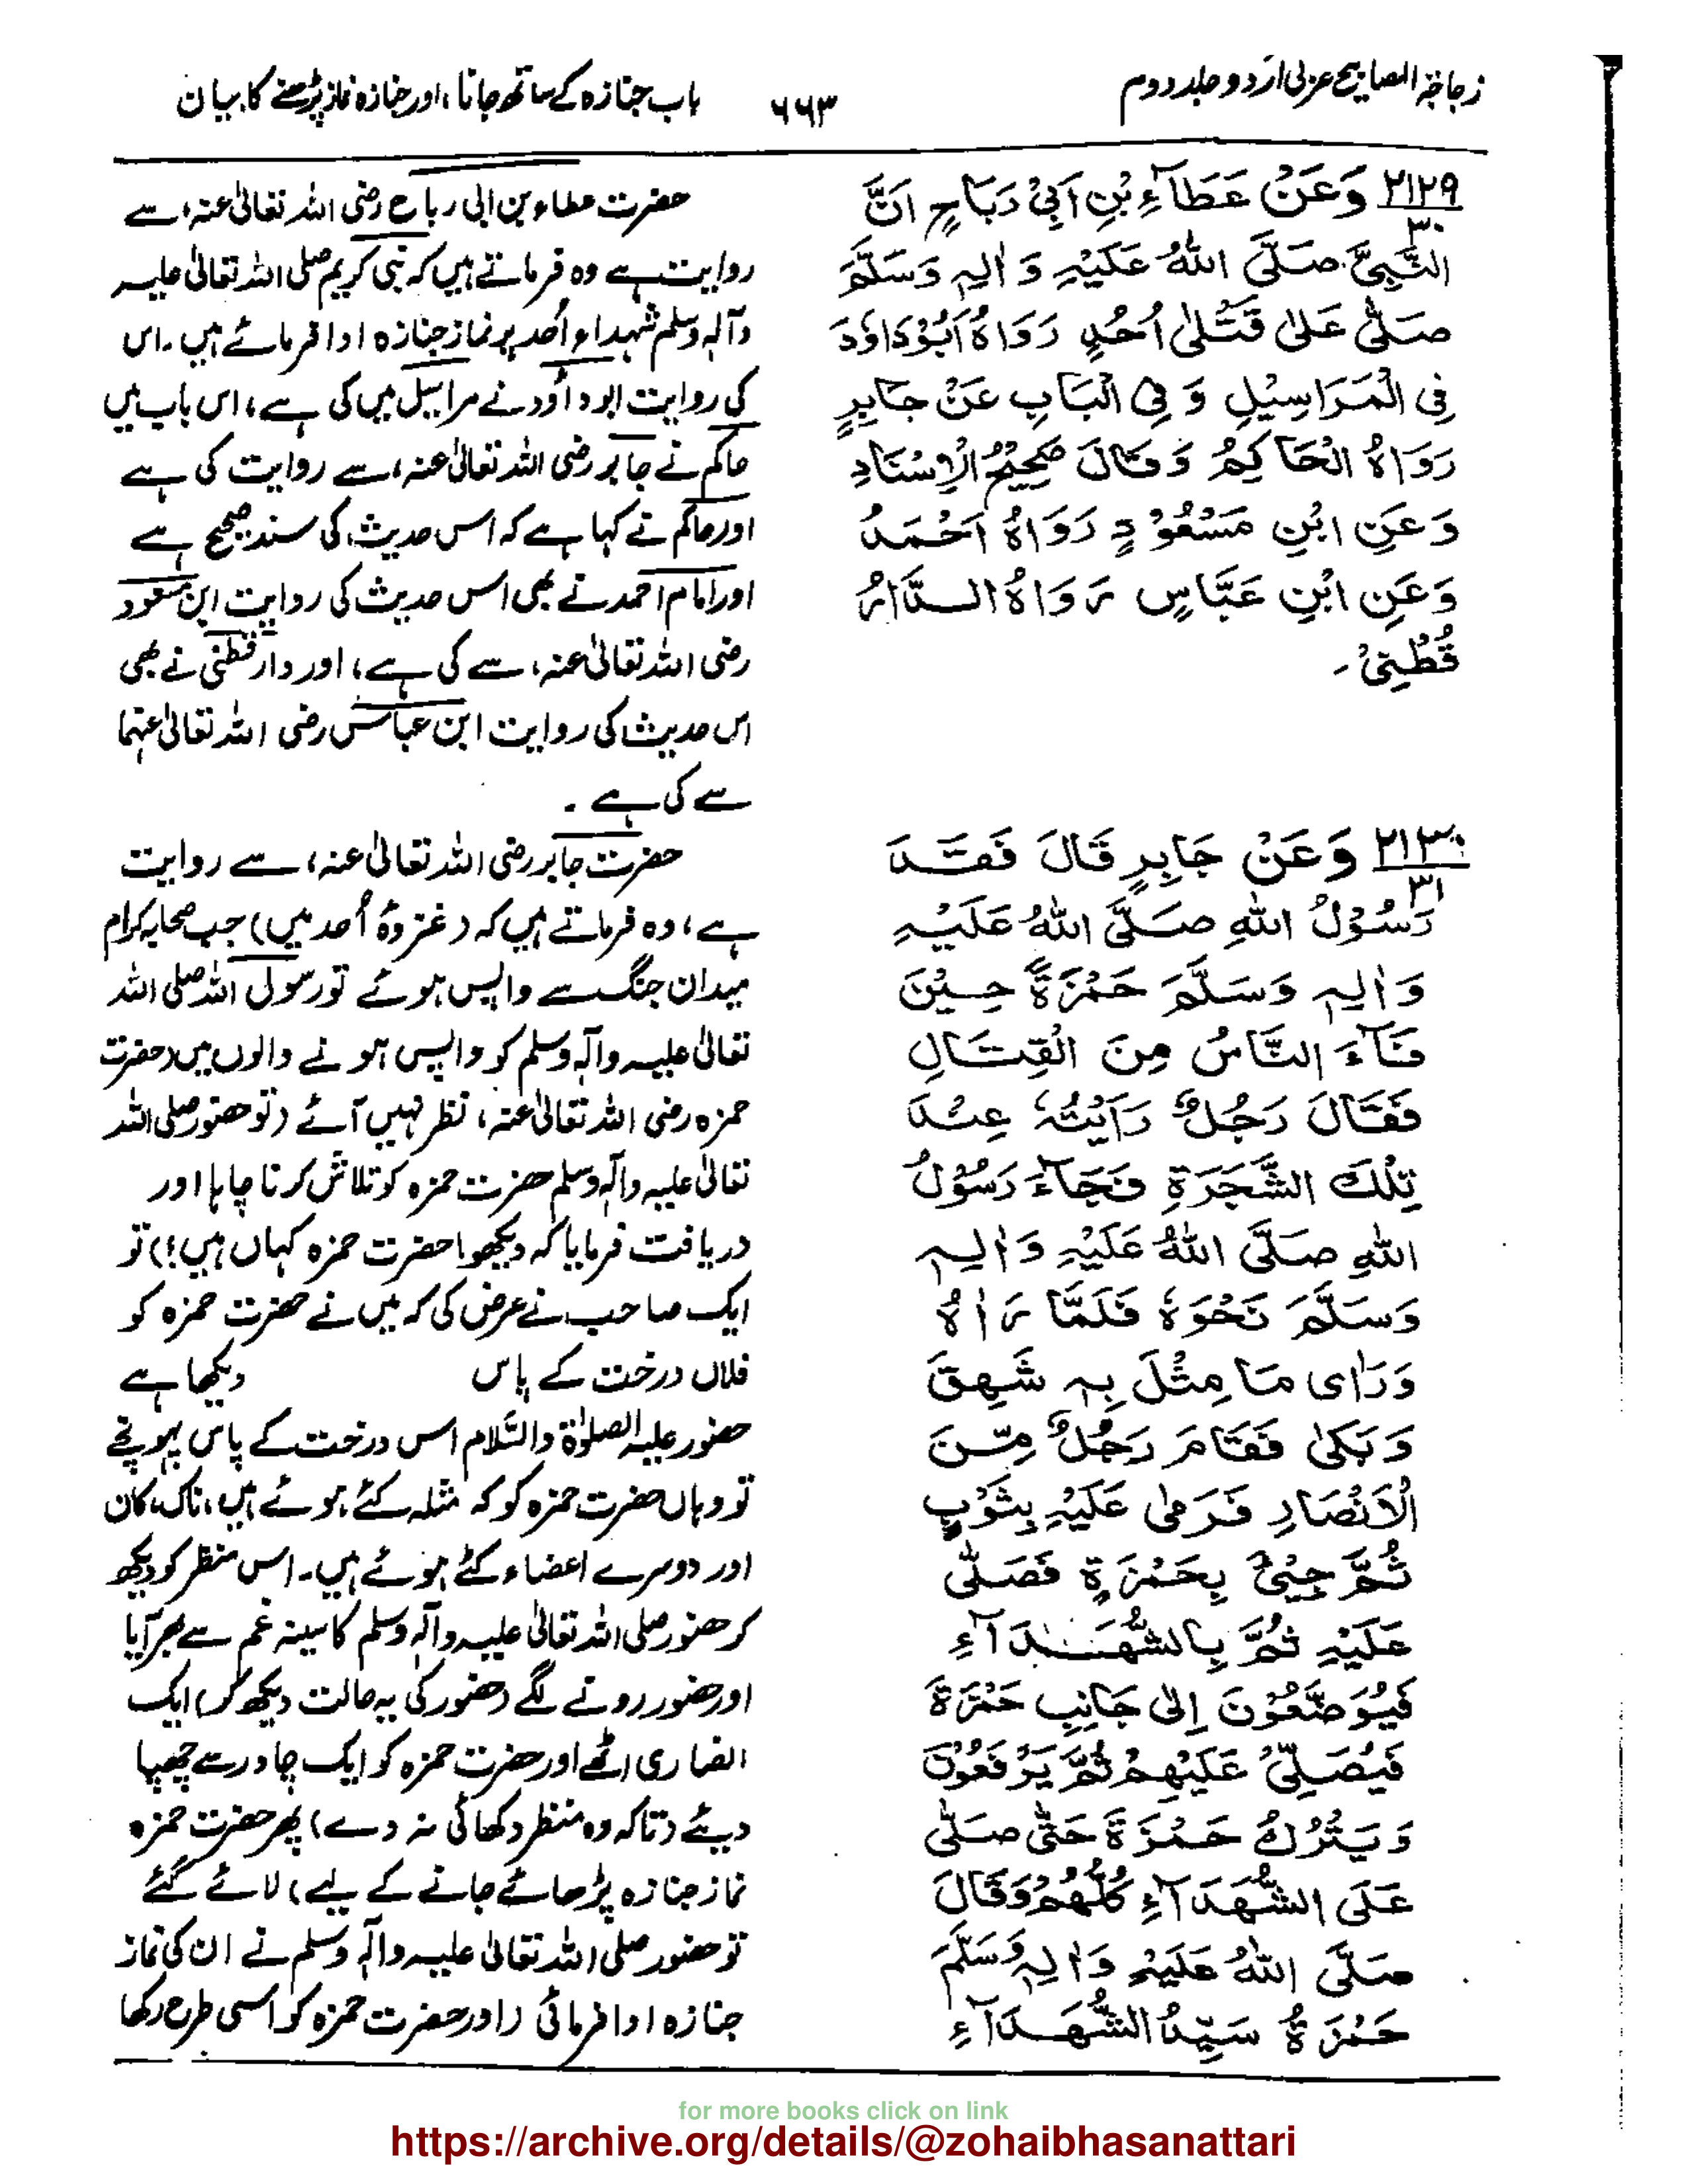 زجاجۃ المصابیح عربی اردو جلد دوم
۶۶۳
باب جنازہ کے ساتھ جانا، اور جنازہ نماز پڑھنے کا بیان
۲۱۲۹ وَعَنْ عَطَآءِ بْنِ اَبِیْ رَبَاحٍ اَنَّ
۳۰
النَّبِیَّ صَلَّی اللّٰہُ عَلَیْہِ وَاٰلِہٖ وَسَلَّمَ
صَلّٰی عَلٰی قَتْلٰی اُحُدٍ رَوَاہُ اَبُوْدَاوٗدَ
فِی الْمَرَاسِیْلِ وَفِی الْبَابِ عَنْ جَابِرٍ
رَوَاہُ الْحَاکِمُ وَقَالَ صَحِیْحُ الْاِسْنَادِ
وَعَنِ ابْنِ مَسْعُوْدٍ رَوَاہُ اَحْمَدُ
وَعَنِ ابْنِ عَبَّاسٍ رَوَاہُ الدَّارُ
قُطْنِیْ۔
حضرت عطاء بن ابی رباح رضی اللہ تعالیٰ عنہ، سے
روایت ہے وہ فرماتے ہیں کہ نبی کریم صلی اللہ تعالیٰ علیہ
وآلہٖ وسلم شہداء اُحد پر نماز جنازہ ادا فرمائے ہیں ۔اس
کی روایت ابو داؤد نے مراسیل میں کی ہے، اس باب میں
حاکم نے جابر رضی اللہ تعالیٰ عنہ، سے روایت کی ہے
اور حاکم نے کہا ہے کہ اس حدیث کی سند صحیح ہے
اور امام احمد نے بھی اس حدیث کی روایت ابن مسعود
رضی اللہ تعالیٰ عنہ، سے کی ہے، اور دار قطنی نے بھی
اس حدیث کی روایت ابن عباس رضی اللہ تعالیٰ عنہما
سے کی ہے ۔
۲۱۳۰ وَعَنْ جَابِرٍ قَالَ فَقَدَ
۳۱
رَسُوْلُ اللّٰہِ صَلَّی اللّٰہُ عَلَیْہِ
وَاٰلِہٖ وَسَلَّمَ حَمْزَۃَ حِیْنَ
فَآءَ النَّاسُ مِنَ الْقِتَالِ
فَقَالَ رَجُلٌ رَاَیْتُہٗ عِنْدَ
تِلْکَ الشَّجَرَۃِ فَجَآءَ رَسُوْلُ
اللّٰہِ صَلَّی اللّٰہُ عَلَیْہِ وَاٰلِہٖ
وَسَلَّمَ نَحْوَہٗ فَلَمَّا رَاٰہُ
وَرَاٰی مَا مُثِّلَ بِہٖ شَہِقَ
وَبَکٰی فَقَامَ رَجُلٌ مِّنَ
الْاَنْصَارِ فَرَمٰی عَلَیْہِ بِثَوْبٍ
ثُمَّ جِیْئَ بِحَمْزَۃٍ فَصَلّٰی
عَلَیْہِ ثُمَّ بِالشُّہَدَآءِ
فَیُوَضَّعُوْنَ اِلٰی جَانِبِ حَمْزَۃَ
فَیُصَلِّیْ عَلَیْہِمْ ثُمَّ یَرْفَعُوْنَ
وَیَتْرُکُ حَمْزَۃَ حَتّٰی صَلّٰی
عَلَی الشُّہَدَآءِ کُلِّہِمْ وَقَالَ
صَلَّی اللّٰہُ عَلَیْہِ وَاٰلِہٖ وَسَلَّمَ
حَمْزَۃُ سَیِّدُ الشُّہَدَآءِ
حضرت جابر رضی اللہ تعالیٰ عنہ، سے روایت
ہے، وہ فرماتے ہیں کہ (غزوۂ اُحد میں) جب صحابہ کرام
میدان جنگ سے واپس ہوئے تو رسول اللہ صلی اللہ
تعالیٰ علیہ وآلہٖ وسلم کو واپس ہونے والوں میں (حضرت
حمزہ رضی اللہ تعالیٰ عنہ، نظر نہیں آئے (تو حضور صلی اللہ
تعالیٰ علیہ وآلہٖ وسلم حضرت حمزہ کو تلاش کرنا چاہا اور
دریافت فرمایا کہ دیکھو! حضرت حمزہ کہاں ہیں؟) تو
ایک صاحب نے عرض کی کہ میں نے حضرت حمزہ کو
فلاں درخت کے پاس دیکھا ہے
حضور علیہ الصلوٰۃ والسّلام اس درخت کے پاس پہونچے
تو وہاں حضرت حمزہ کو کہ مثلہ کئے ہوئے ہیں، ناک، کان
اور دوسرے اعضاء کٹے ہوئے ہیں۔ اس منظر کو دیکھ
کر حضور صلی اللہ تعالیٰ علیہ وآلہٖ وسلم کا سینہ غم سے بھر آیا
اور حضور رونے لگے (حضور کی یہ حالت دیکھ کر) ایک
انصاری اٹھے اور حضرت حمزہ کو ایک چادر سے چھپا
دیئے (تاکہ وہ منظر دکھائی نہ دے) پھر حضرت حمزہ
نماز جنازہ پڑھائے جانے کے لیے) لائے گئے
تو حضور صلی اللہ تعالیٰ علیہ وآلہٖ وسلم نے ان کی نماز
جنازہ ادا فرمائی (اور حضرت حمزہ کو اسی طرح رکھا
for more books click on link
https://archive.org/details/@zohaibhasanattari